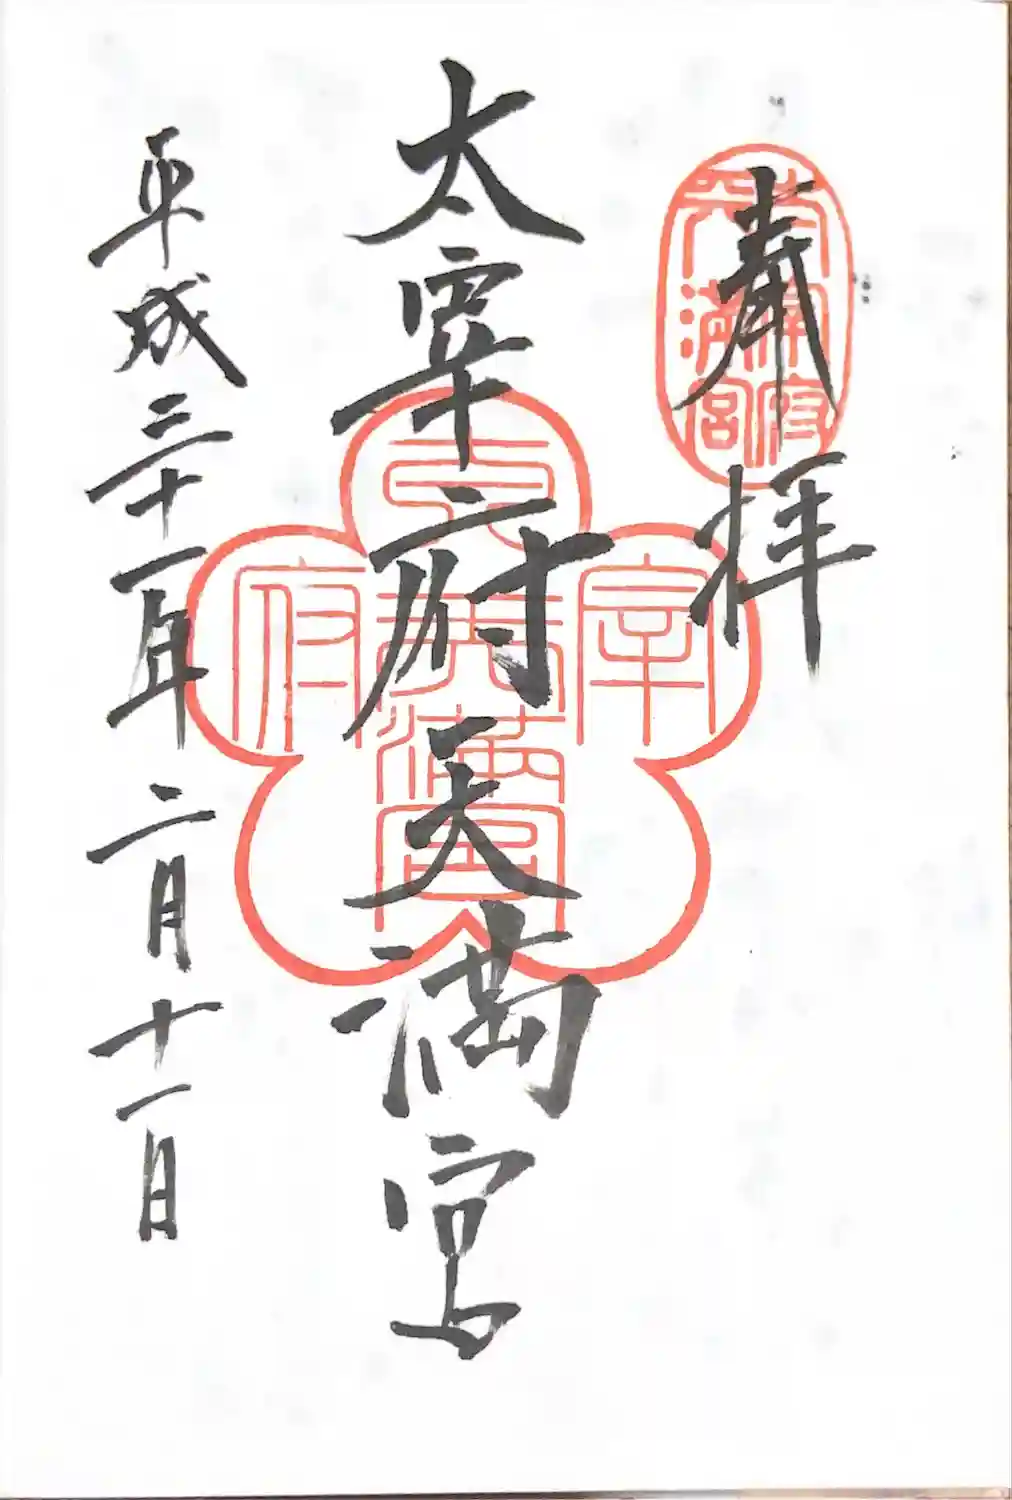 奉拝
太宰府天満宮
太宰府天満宮
太宰府天満宮
平成三十一年二月十一日